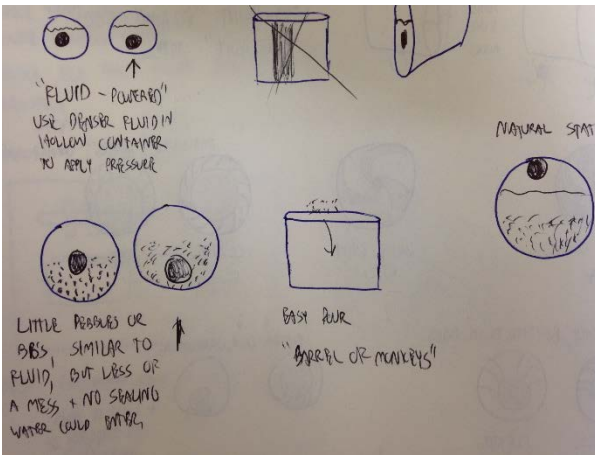 "FLUID - POWERED"
USE DENSER FLUID IN
HOLLOW CONTAINER
TO APPLY PRESSURE
NATURAL STAT
LITTLE PEBBLES OR
BB'S, SIMILAR TO
FLUID, BUT LESS OF
A MESS + NO SEALING
WATER COULD ENTER,
EASY POUR
"BARREL OF MONKEYS"